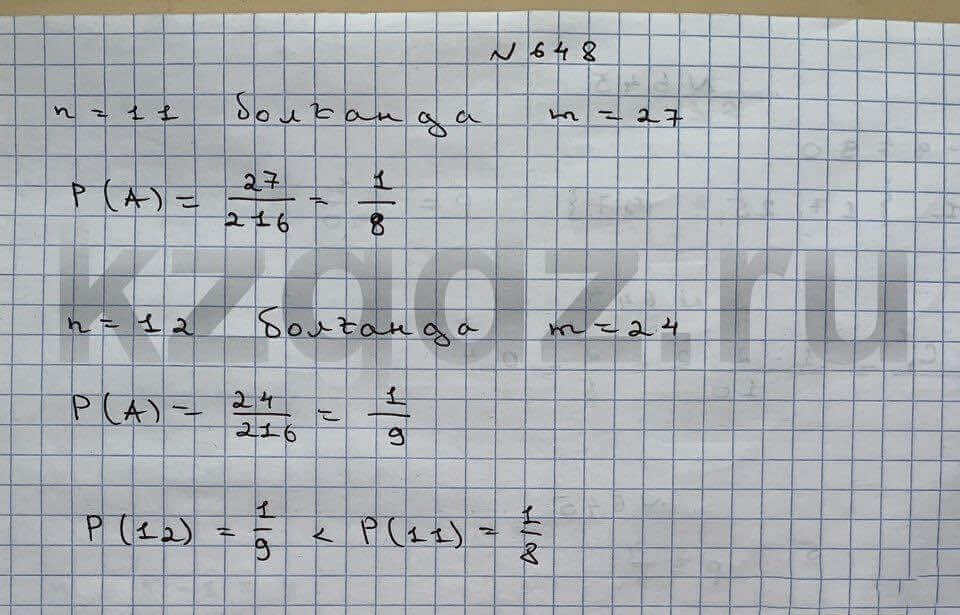 N 648
n = 11 болғанда m = 27
P(A) = 27/216 = 1/8
kzgdz.ru
n = 12 болғанда m = 24
P(A) = 24/216 = 1/9
P(12) = 1/9 < P(11) = 1/8